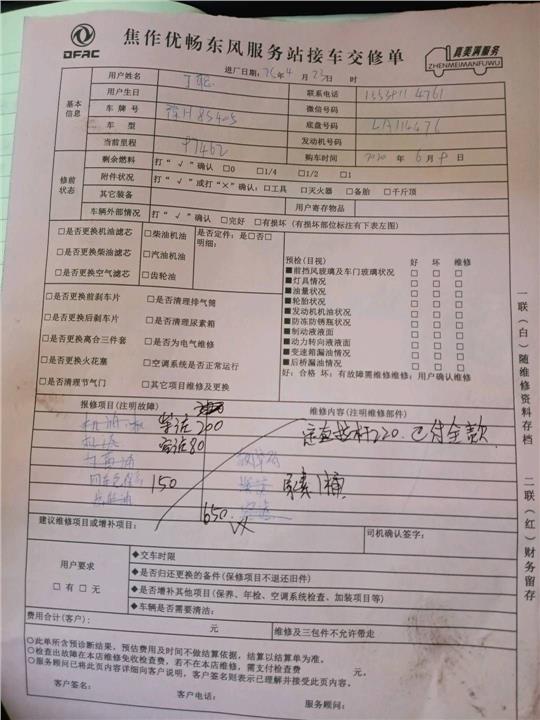 DFAC
焦作优畅东风服务站接车交修单
真美满服务
ZHENMEIMANFUWU
进厂日期: 26年 4月 23日 时
基本信息
用户姓名 联系电话
用户生日 微信号码
车牌号 豫H 85405 底盘号码 LA114476
车型 发动机号
当前里程 91462 购车时间 2020年 6月 9日
修前状态
剩余燃料 打“√”确认 □0 □1/4 □1/2 □1
附件状况 打“√”或打“×”确认: □工具 □灭火器 □备胎 □千斤顶
其它装备 用户寄存物品
车辆外部情况 打“√”确认 □完好 □有损坏 (有损坏部位标注有下表左图)
□是否更换机油滤芯 □柴油机油 是否定件: 是□否□
□是否更换柴油滤芯 □汽油机油 明细:
□是否更换空气滤芯 □齿轮油
□是否更换前刹车片 □是否清理排气筒
□是否更换后刹车片 □是否清理尿素箱
□是否更换离合三件套 □是否为电气维修
□是否更换火花塞 □空调系统是否正常运行
□是否清理节气门 □其它项目维修及更换
预检(目视) 好 坏 维修
■前挡风玻璃及车门玻璃状况 □ □ □
■灯具情况 □ □ □
■油量状况 □ □ □
■轮胎状况 □ □ □
■发动机机油状况 □ □ □
■防冻防锈瓶状况 □ □ □
■制动液液面 □ □ □
■动力转向液液面 □ □ □
■变速箱漏油情况 □ □ □
■后桥漏油情况 □ □ □
好: 合格 坏: 有故障需维修维维: 用户确认维修
报修项目(注明故障) 维修内容(注明维修部件)
机油 200 220 已付全款
机滤 80
150 尿素1桶
650
建议维修项目或增补项目: 司机确认签字:
用户要求
□有 □无
◆交车时限
◆是否归还更换的备件(保修项目不退还旧件)
◆是否增补其他项目(保养、年检、空调系统检查、加装项目等)
◆车辆是否需要清洁:
费用合计(客户): 元 维修及三包件不允许带走
○此单所含预诊断结果, 预估费用及时间不做结算依据, 结算以结算单为准。
○检查出故障在本店维修免收检查费, 若不在本店维修, 需支付检查费 元。
○服务顾问已将此页内容详细向客户说明, 客户签名则表示已理解并接受此页内容。
客户签名: 客户电话: 服务顾问:
一联(白)随维修资料存档
二联(红)财务留存